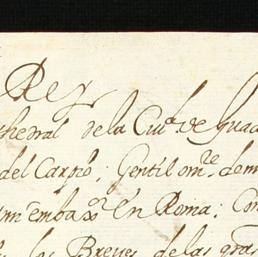 Rey
thedral de la Ciu.d de Guad
del Carpio; Gentil om.e de m
mi embax.or en Roma; Con
los Breves de las gra